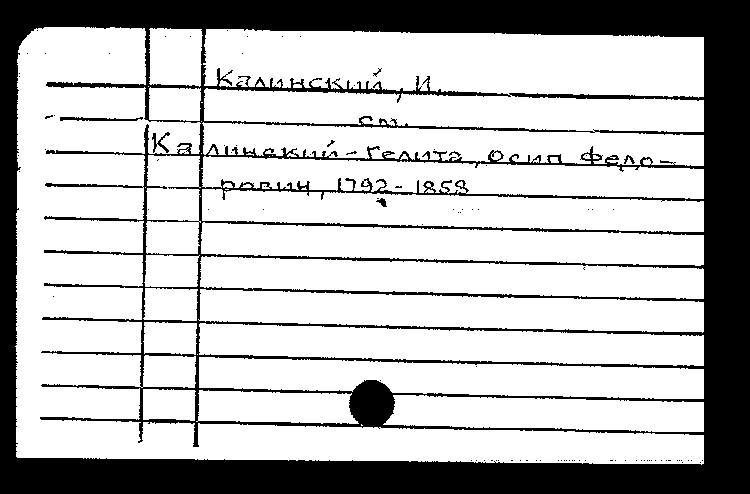 Калинский, И.
см.
Калинский-Гелита, Осип Федо-
рович, 1792-1858